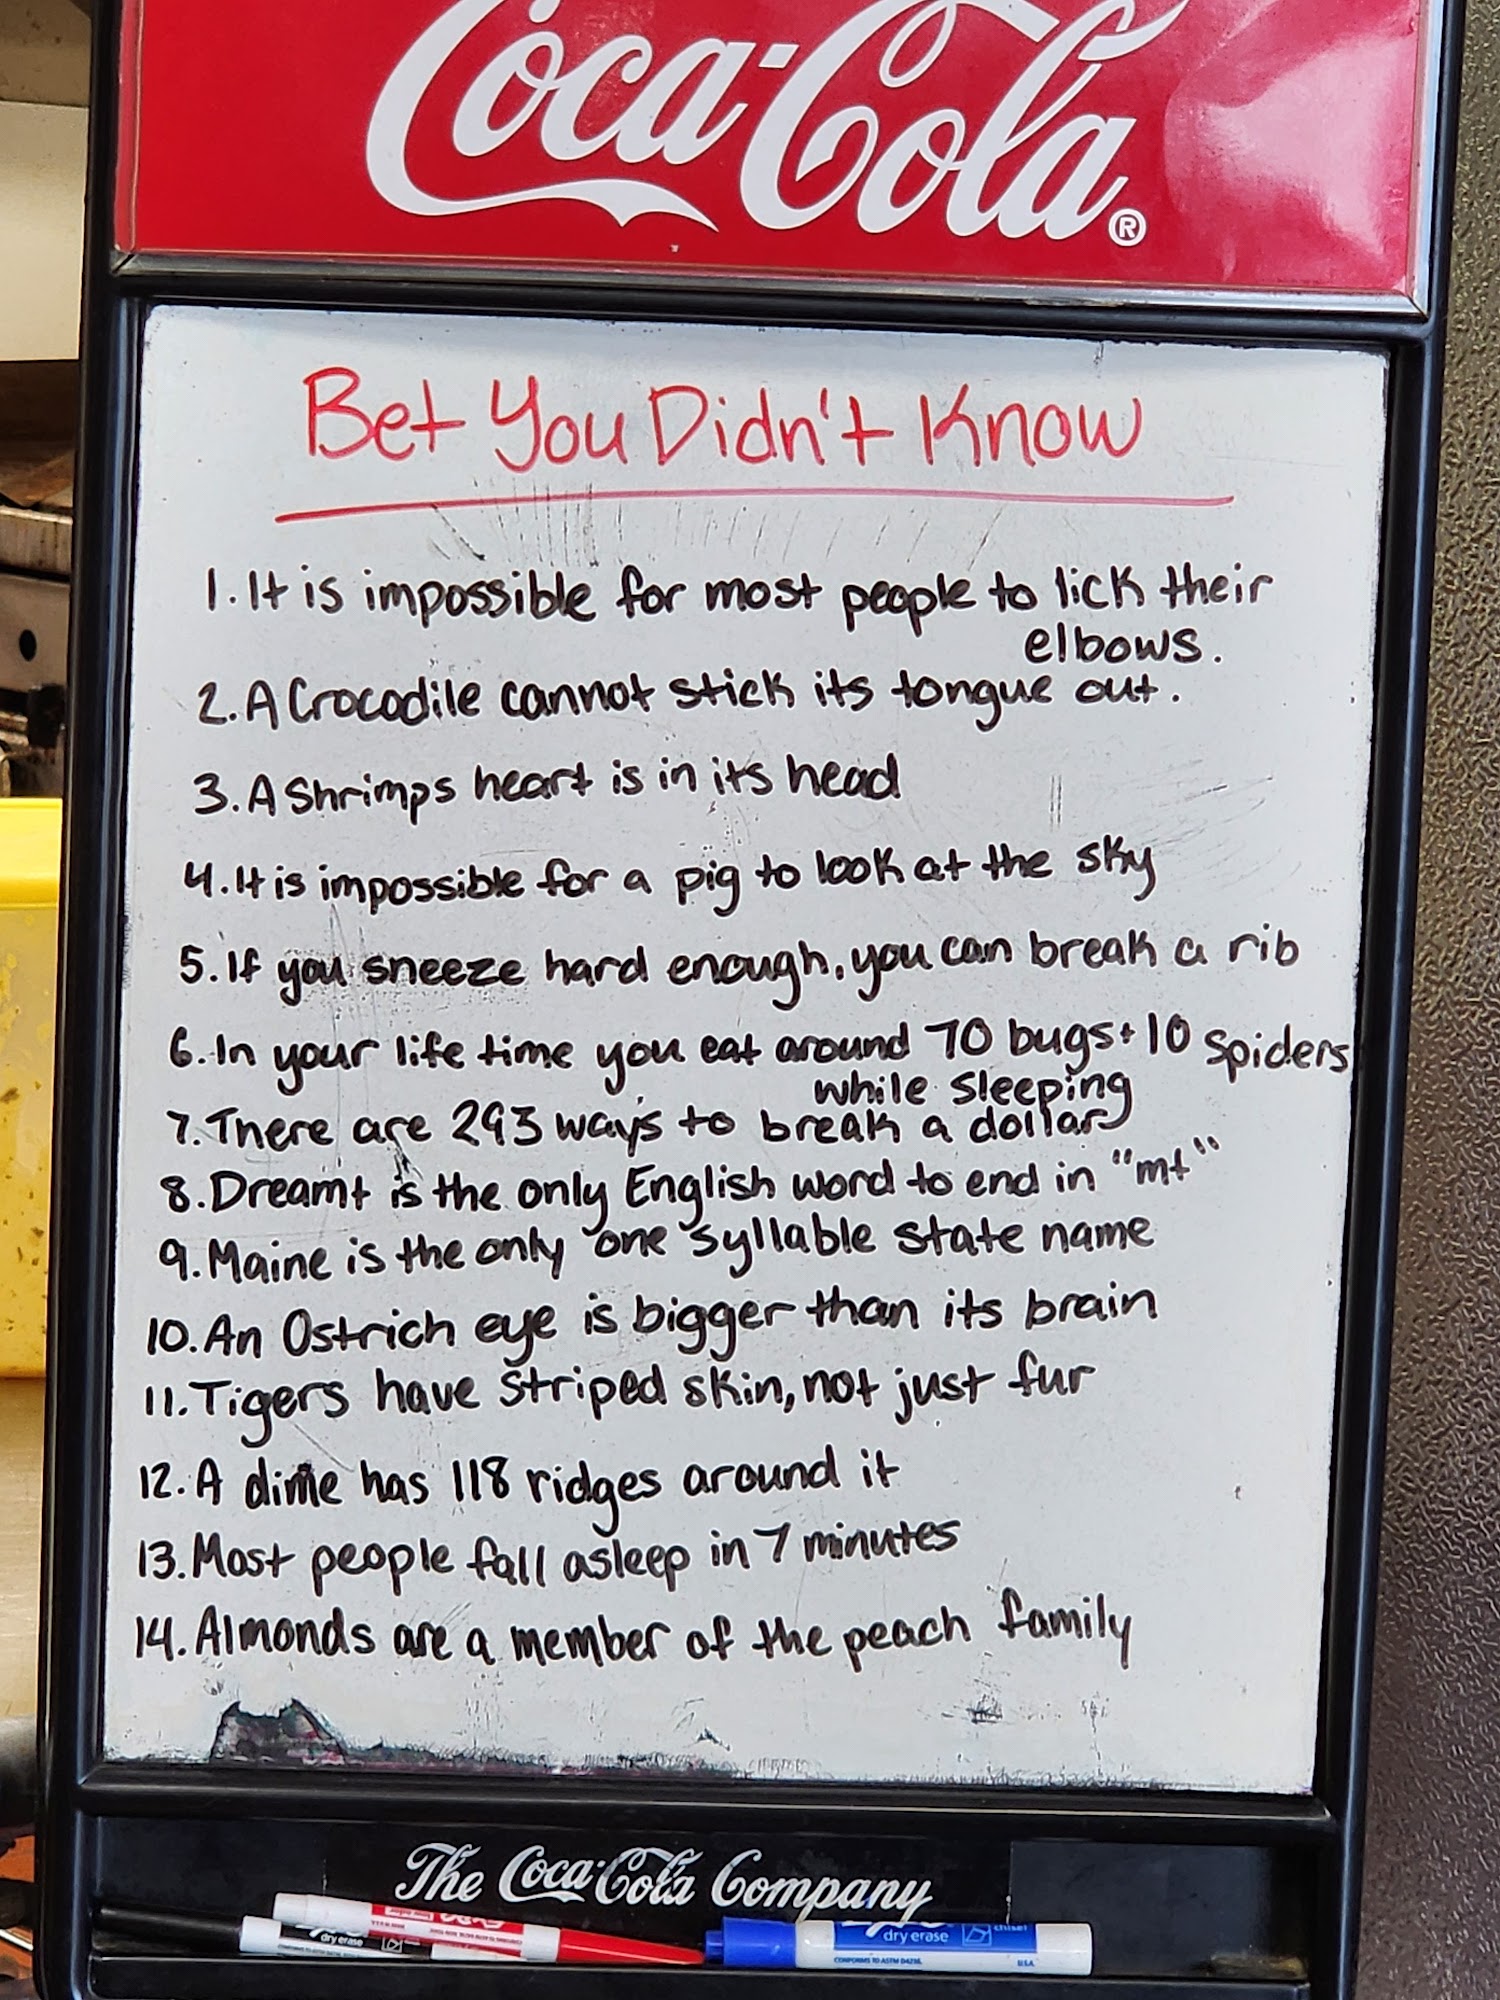 Coca-Cola®
Bet You Didn't Know
1. It is impossible for most people to lick their
elbows.
2. A Crocodile cannot stick its tongue out.
3. A Shrimps heart is in its head
4. It is impossible for a pig to look at the sky
5. If you sneeze hard enough, you can break a rib
6. In your life time you eat around 70 bugs + 10 spiders
while sleeping
7. There are 293 ways to break a dollar
8. Dreamt is the only English word to end in "mt"
9. Maine is the only one syllable state name
10. An Ostrich eye is bigger than its brain
11. Tigers have striped skin, not just fur
12. A dime has 118 ridges around it
13. Most people fall asleep in 7 minutes
14. Almonds are a member of the peach family
The Coca-Cola Company
dry erase
dry erase
CONFORMS TO ASTM D4236.
USA